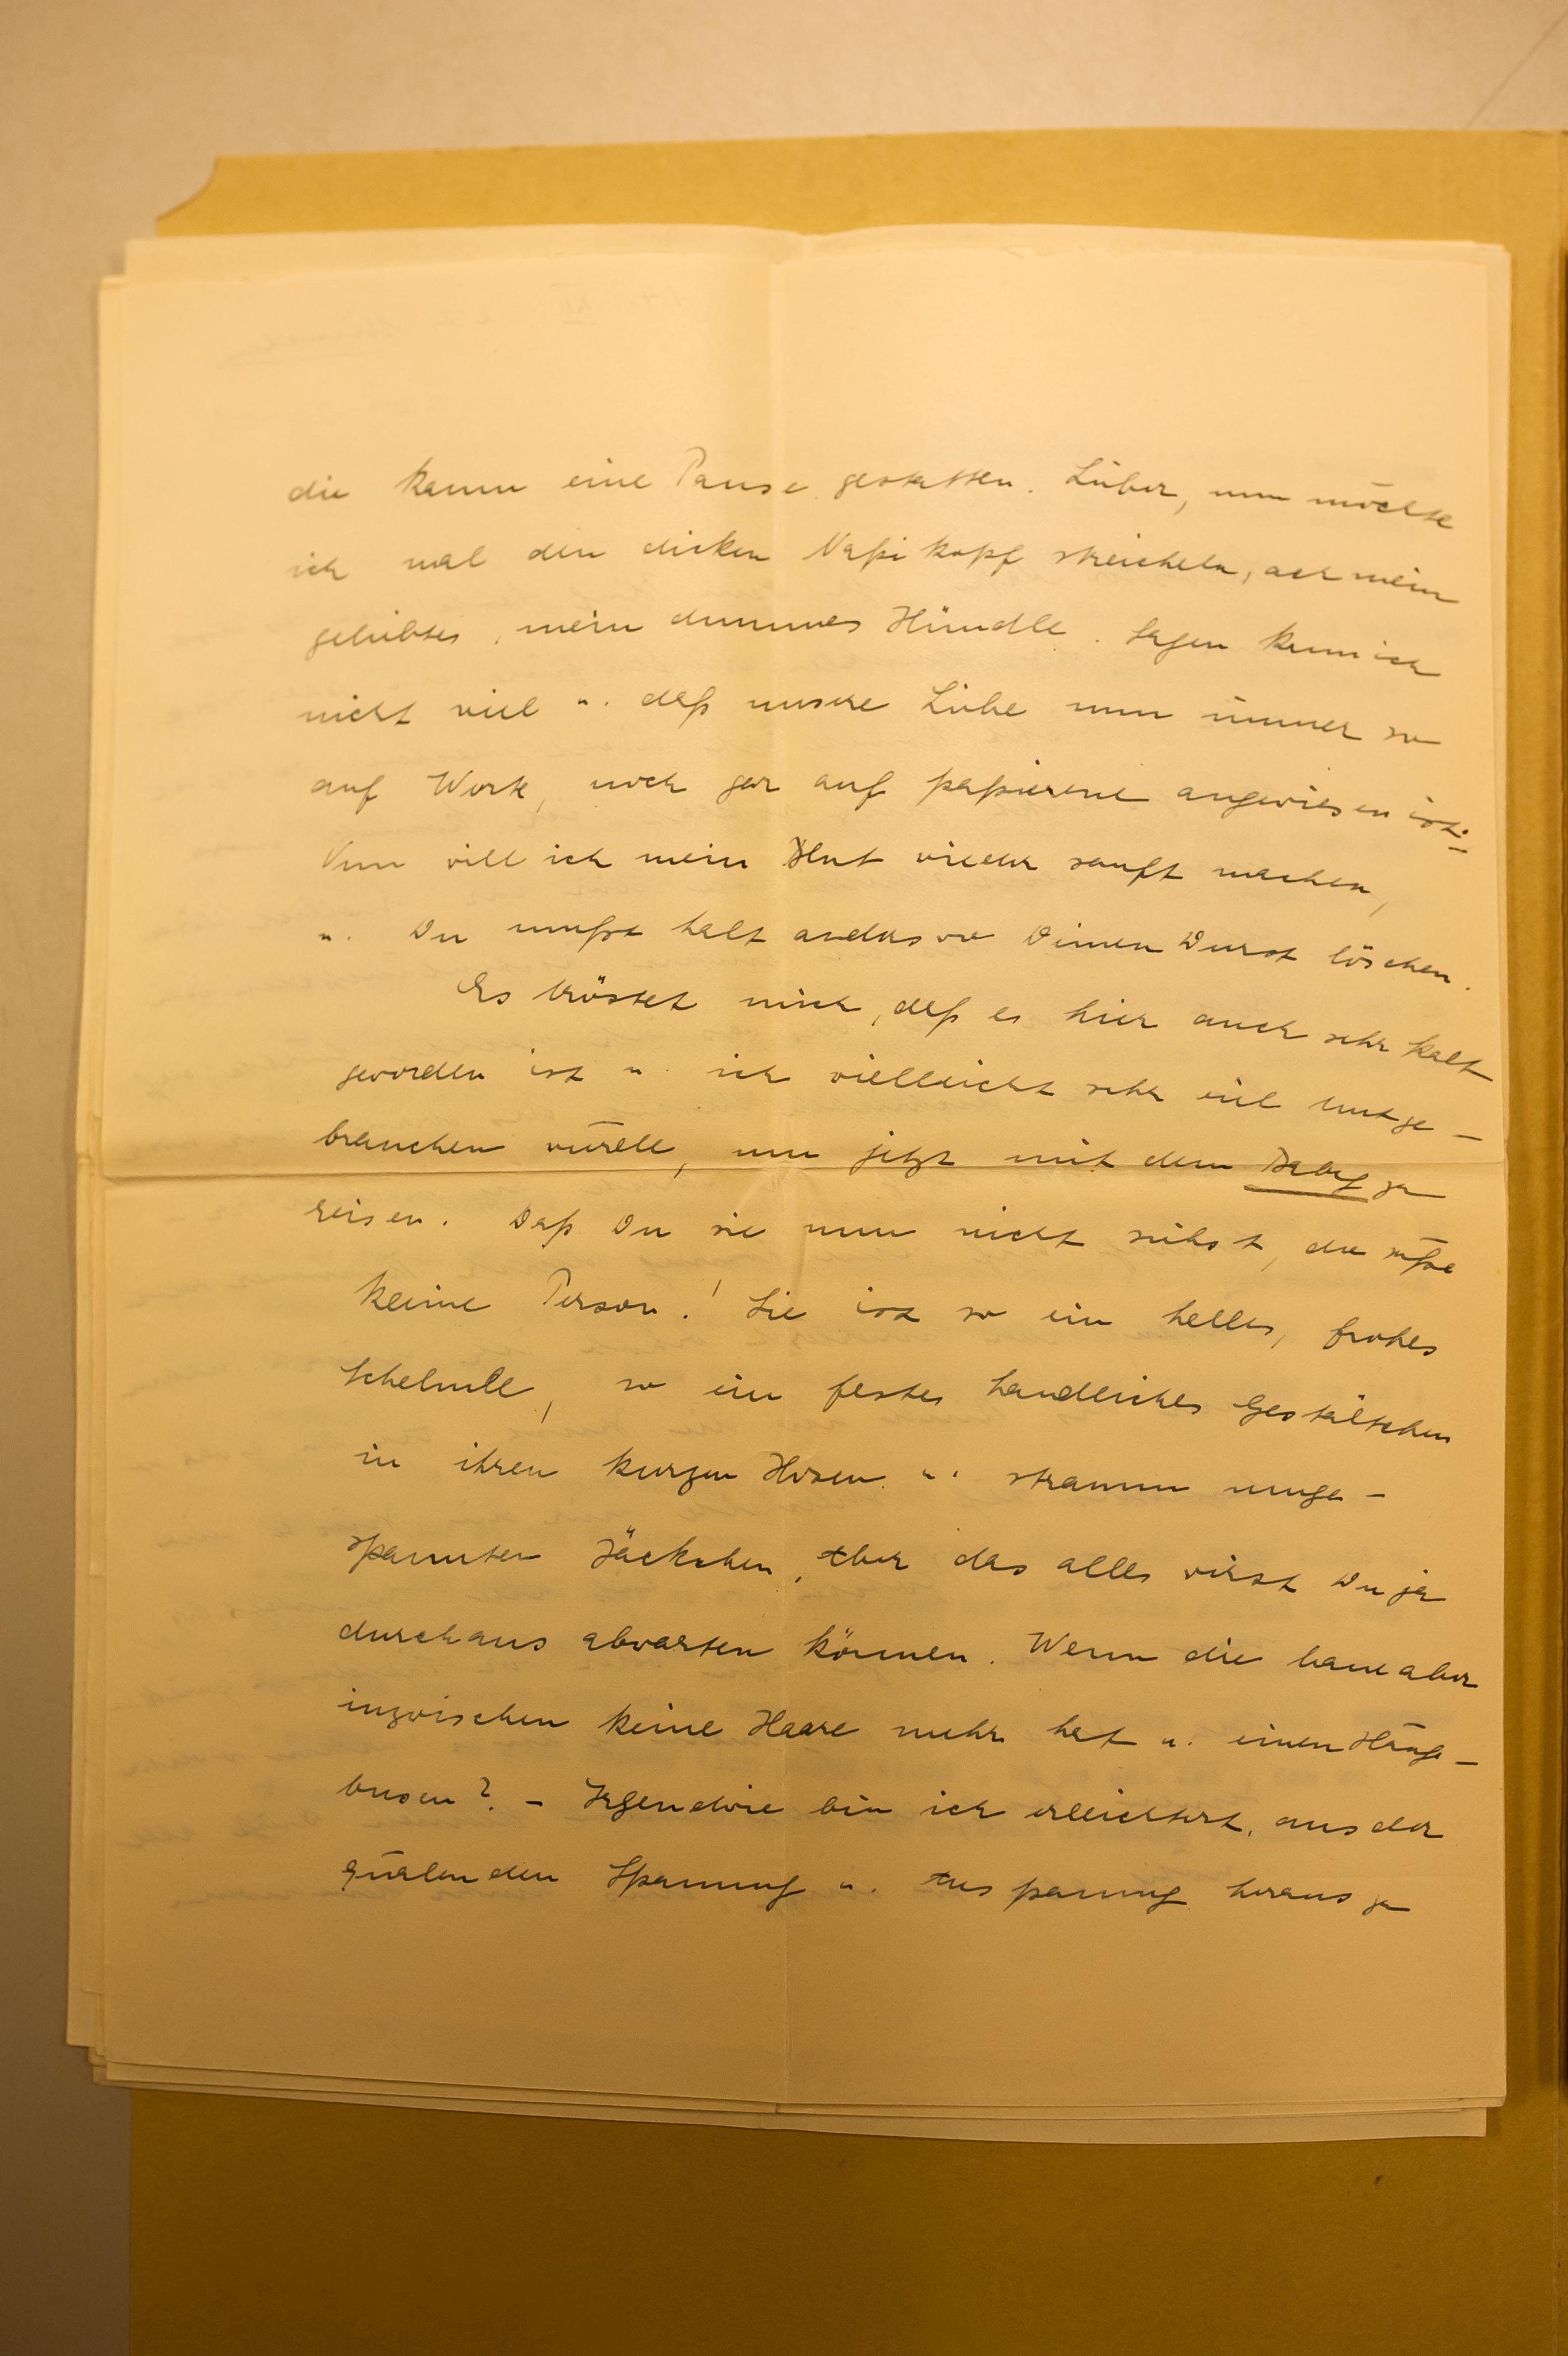 die kaum eine Pause gestatten. Lieber, nun möchte
ich mal den dicken Napikopf streicheln, ach mein
geliebtes, mein dummes Hündle. Sagen kann ich
nicht viel u. daß unsere Liebe nun immer so
auf Worte, noch gar auf papierene angewiesen ist.
Nun will ich mein Blut wieder sanft machen,
u. Du mußt halt anderswo Deinen Durst löschen.
Es tröstet mich, daß es hier auch sehr kalt
geworden ist u. ich vielleicht sehr viel Mut ge-
brauchen würde, um jetzt mit dem Baby zu
reisen. Daß Du sie nun nicht siehst, die süße
kleine Person! Sie ist so ein helles, frohes
Schelmle, so ein festes handliches Gestältchen
in ihren kurzen Hosen u. stramm umge-
spannten Jäckchen, aber das alles wirst Du ja
durchaus abwarten können. Wenn die aber
inzwischen keine Haare mehr hat u. einen Hänge-
busen? - Irgendwie bin ich erleichtert, aus der
quälenden Spannung u. heraus zu